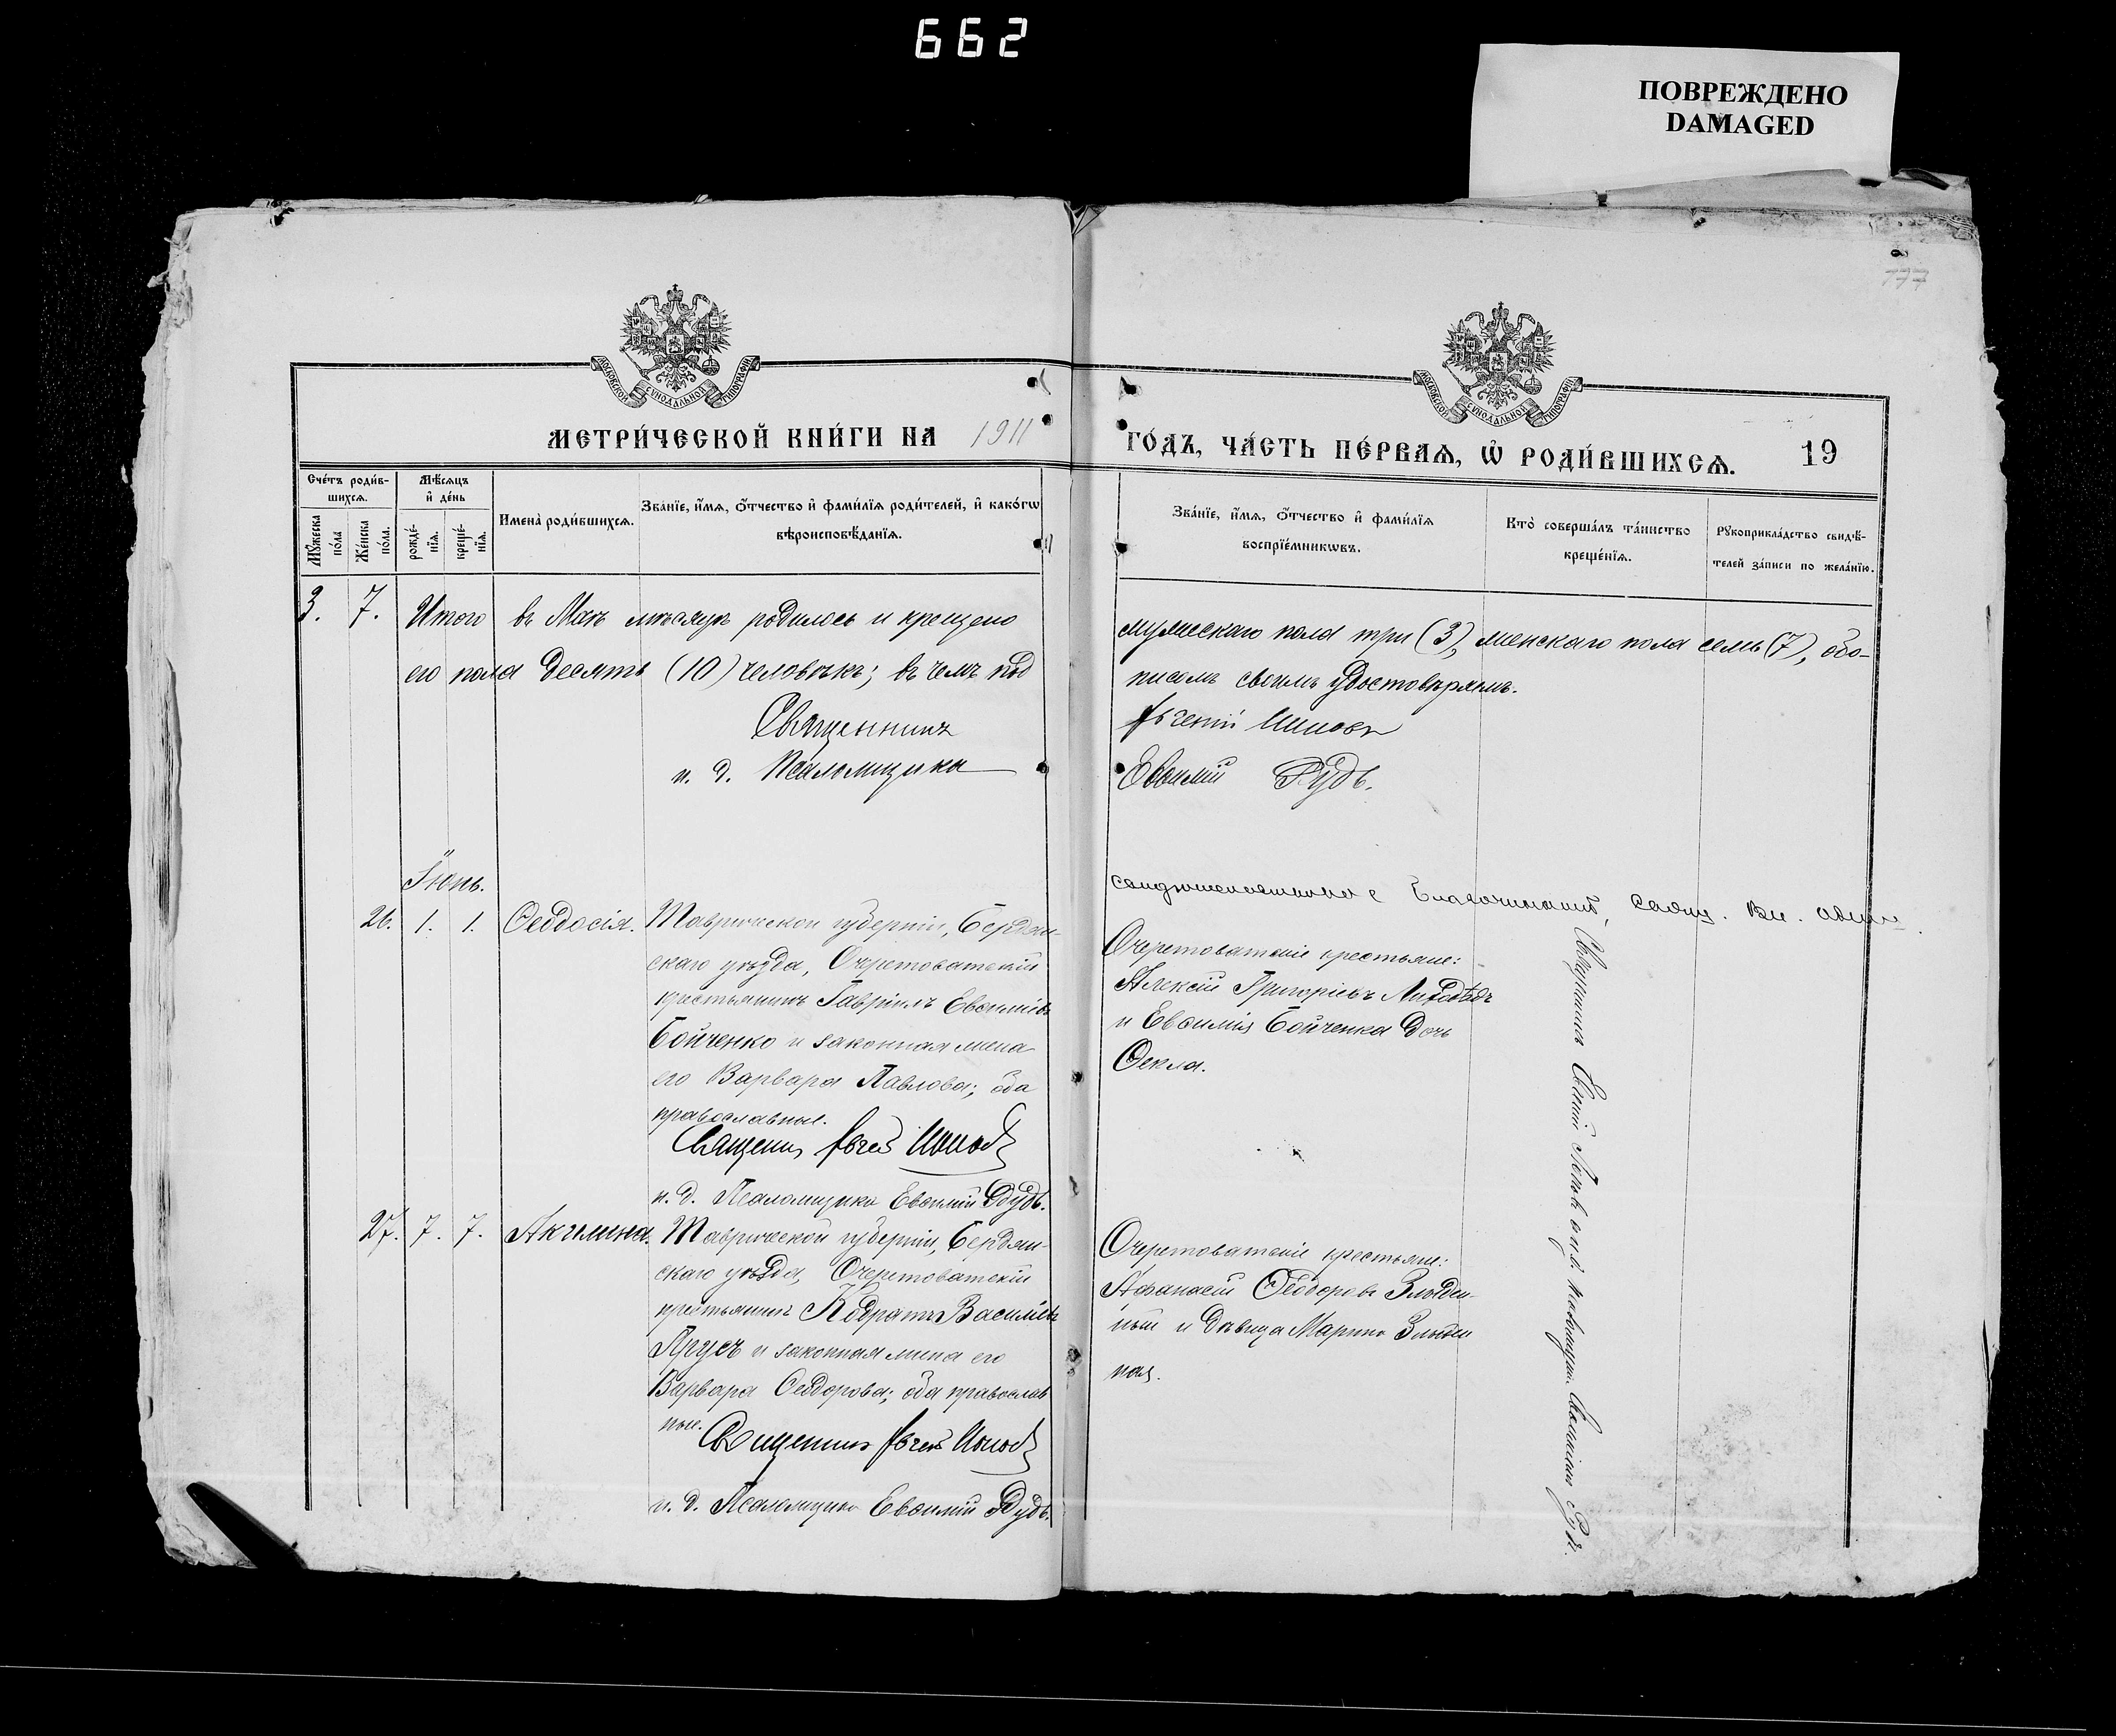 662
ПОВРЕЖДЕНО
DAMAGED
777
МОСКОВСКОЙ СУНОДАЛЬНОЙ ТИПОГРАФІИ
МОСКОВСКОЙ СУНОДАЛЬНОЙ ТИПОГРАФІИ
МЕТРИ́ЧЕСКОЙ КНИ́ГИ НА 1911
ГО́ДЪ, ЧА́СТЬ ПЕ́РВАѦ, Ѡ РОДИ́ВШИХСѦ. 19
Сче́тъ роди́в-
шихсѧ.
Мꙋ́жеска
по́ла
Же́нска
по́ла.
Мѣ́сѧцъ
и҆ де́нь
рожде́-
нїѧ.
креще́-
нїѧ.
Имена̀ роди́вшихсѧ.
Зва́нїе, и҆́мѧ, ѻ҆́тчество и҆ фами́лїѧ роди́телей, и҆ како́гѡ
вѣроисповѣ́данїѧ.
Зва́нїе, и҆́мѧ, ѻ҆́тчество и҆ фами́лїѧ
воспрїе́мникѡвъ.
Кто̀ соверша́лъ та́инство
креще́нїѧ.
Рꙋкоприкла́дство свидѣ́-
телей за́писи по жела́нїю.
3. 7. Итого въ Маѣ мѣсяцѣ родилось и крещено
его пола десять (10) человѣкъ; въ чемъ под
Священникъ
и. д. Псаломщика
мужескаго пола три (3), женскаго пола семь (7), обо-
писомъ своимъ удостовѣряемъ.
Евгеній
Евѳимій Рудь.
Іюнь.
26. 1. 1. Ѳеодосія. Таврической губерніи, Бердян-
скаго уѣзда, Очеретоватскій
крестьянинъ Гавріилъ Евѳиміевъ
Бойченко и законная жена
его Варвара Павлова; оба
православные.
Священникъ Евгеній
и. д. Псаломщика Евѳимій Рудь.
Благочинный,
Очеретоватскіе крестьяне:
Алексій Григоріевъ
и Евѳимія Бойченка дочь
Ѳекла.
Священникъ Евгеній
27. 7. 7. Акилина. Таврической губерніи, Бердян-
скаго уѣзда, Очеретоватскій
крестьянинъ Кодратъ Василіевъ
Прусъ и законная жена его
Варвара Ѳеодорова; оба православ
ные.
Священникъ Евгеній
и. д. Псаломщика Евѳимій Рудь.
Очеретоватскіе крестьяне:
Аѳанасій Ѳеодоровъ
ный и дѣвица Марина
ная.